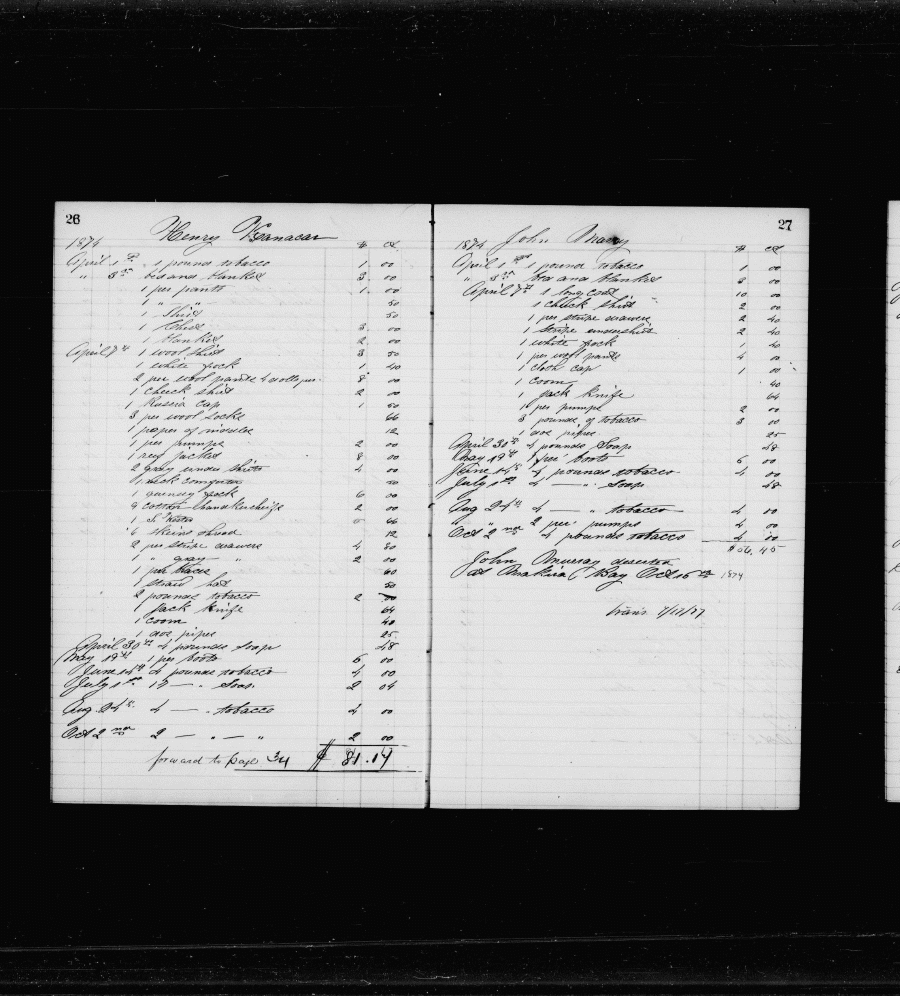 26
Henry Vanacar
1874 $ cts
April 1st 1 pound tobacco 1 00
" 3rd bed and blanket 3 00
1 per pants 1 00
1 " " 50
1 Shirt 50
1 Chest 3 00
1 blanket 2 00
April 7th 1 wool shirt 3 50
1 white frock 1 40
2 per wool pants 4 dolls per 8 00
1 check shirt 2 00
1 Russia cap 1 50
3 per wool socks 66
1 paper of needles 12
1 per pumps 2 00
1 jacket 8 00
2 gray under shirts 4 00
1 neck comforter 50
1 guernsey frock 6 00
cotton handkerchiefs 2 00
1 66
6 skeins thread 12
2 per stripe drawers 4 80
1 " gray " 2 00
1 per 60
1 straw hat 50
2 pounds tobacco 2 00
1 jack knife 64
1 coom 40
1 doz pipes 25
April 30th 4 pounds soap 48
May 19th 1 per boots 6 00
June 14th 4 pounds tobacco 4 00
July 1st 17 — " soap 2 04
Aug 24th 4 — " tobacco 4 00
Oct 2nd 2 — " — " 2 00
forward to page 34 $ 81.14
27
1874 John
$ cts
April 1st 1 pound tobacco 1 00
" 3rd bed and blanket 3 00
April 7th 1 long coat 10 00
1 check shirt 2 00
1 per stripe drawers 2 40
1 stripe undershirt 2 40
1 white frock 1 40
1 per pants 4 00
1 cloth cap 1 00
1 coom 40
1 jack knife 64
1 per pumps 2 00
3 pounds of tobacco 3 00
1 doz pipes 25
April 30th 4 pounds soap 48
May 19th 1 per boots 6 00
June 14th 4 pounds tobacco 4 00
July 1st 4 — " soap 48
Aug 24th 4 — " tobacco 4 00
" " 2 per pumps 4 00
Oct 2nd 4 pounds tobacco 4 00
$56.45
John Murray deserted
at Bay Oct 16th 1874